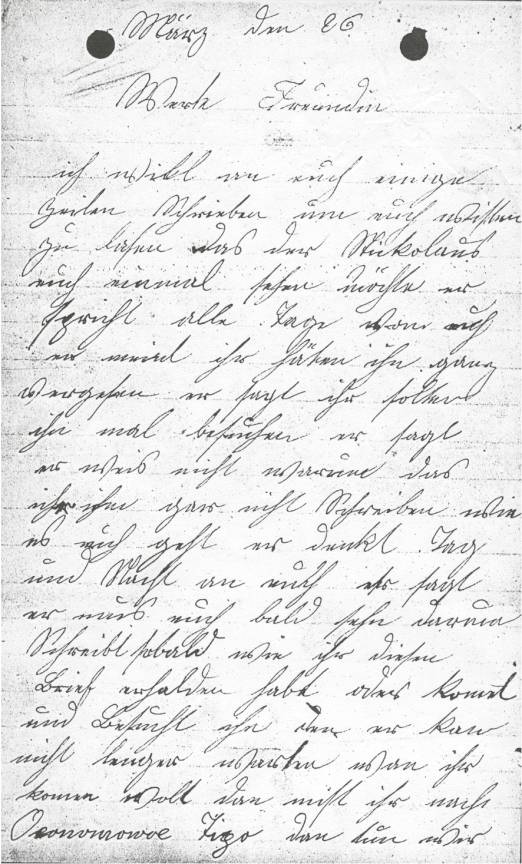 März den 26
Werte Freundin
ich will an euch einige
Zeilen Schrieben um euch wissen
zu lasen das der Nickolaus
euch einmal sehen möchte er
spricht alle Tage von euch
er meint ihr häten ihn ganz
vergesen er sagt ihr solten
ihn mal besuchen er sagt
er weis nicht warum das
ihr ihm gar nicht Schreiben wie
es euch geht er denkt Tag
und Nacht an euch er sagt
er mus euch bald sehn darum
Schreibt sobald wie ihr diesen
Brief erhalden habt oder komet
und Besucht ihn den er kan
nicht lenger warten wan ihr
komen wolt dan mist ihr nach
Oconomowoc dan tun wir